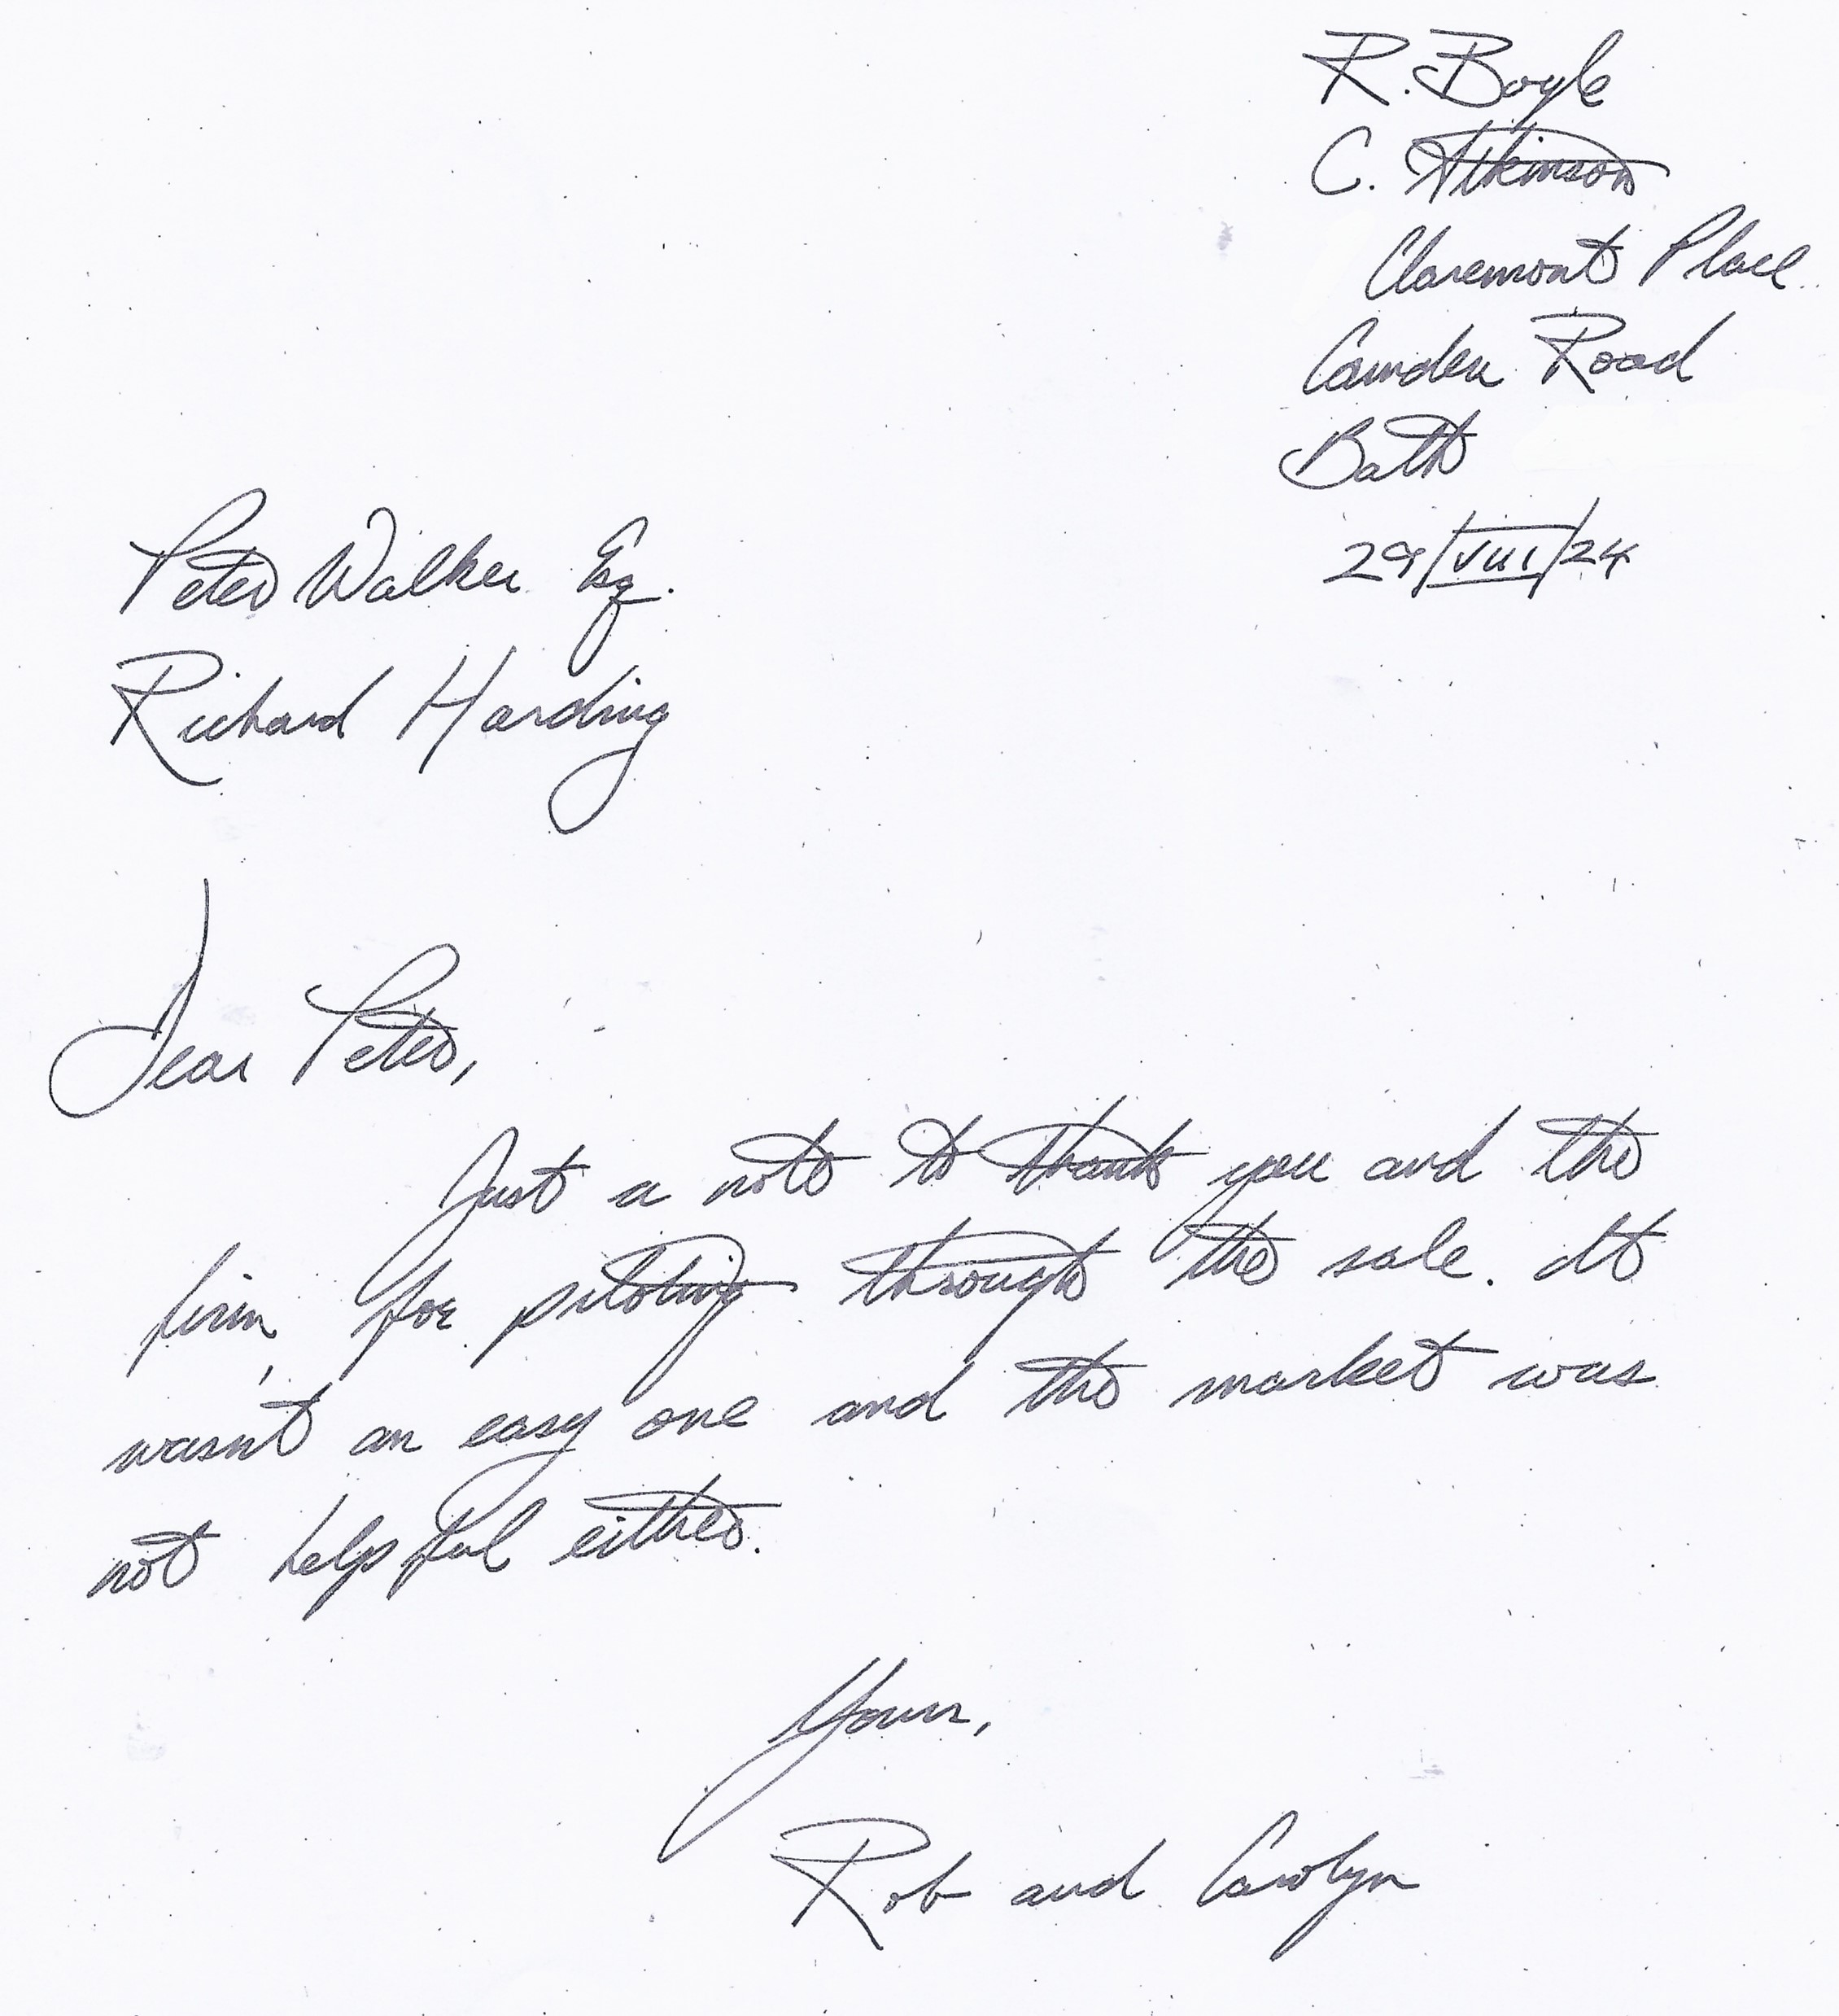 R. Boyle
C. Atkinson
Claremont Place
Camden Road
Bath
29/VIII/24
Peter Walker Esq.
Richard Harding
Dear Peter,
Just a note to thank you and the
firm, for piloting through the sale. It
wasn't an easy one and the market was
not helpful either.
Yours,
Rob and Carolyn